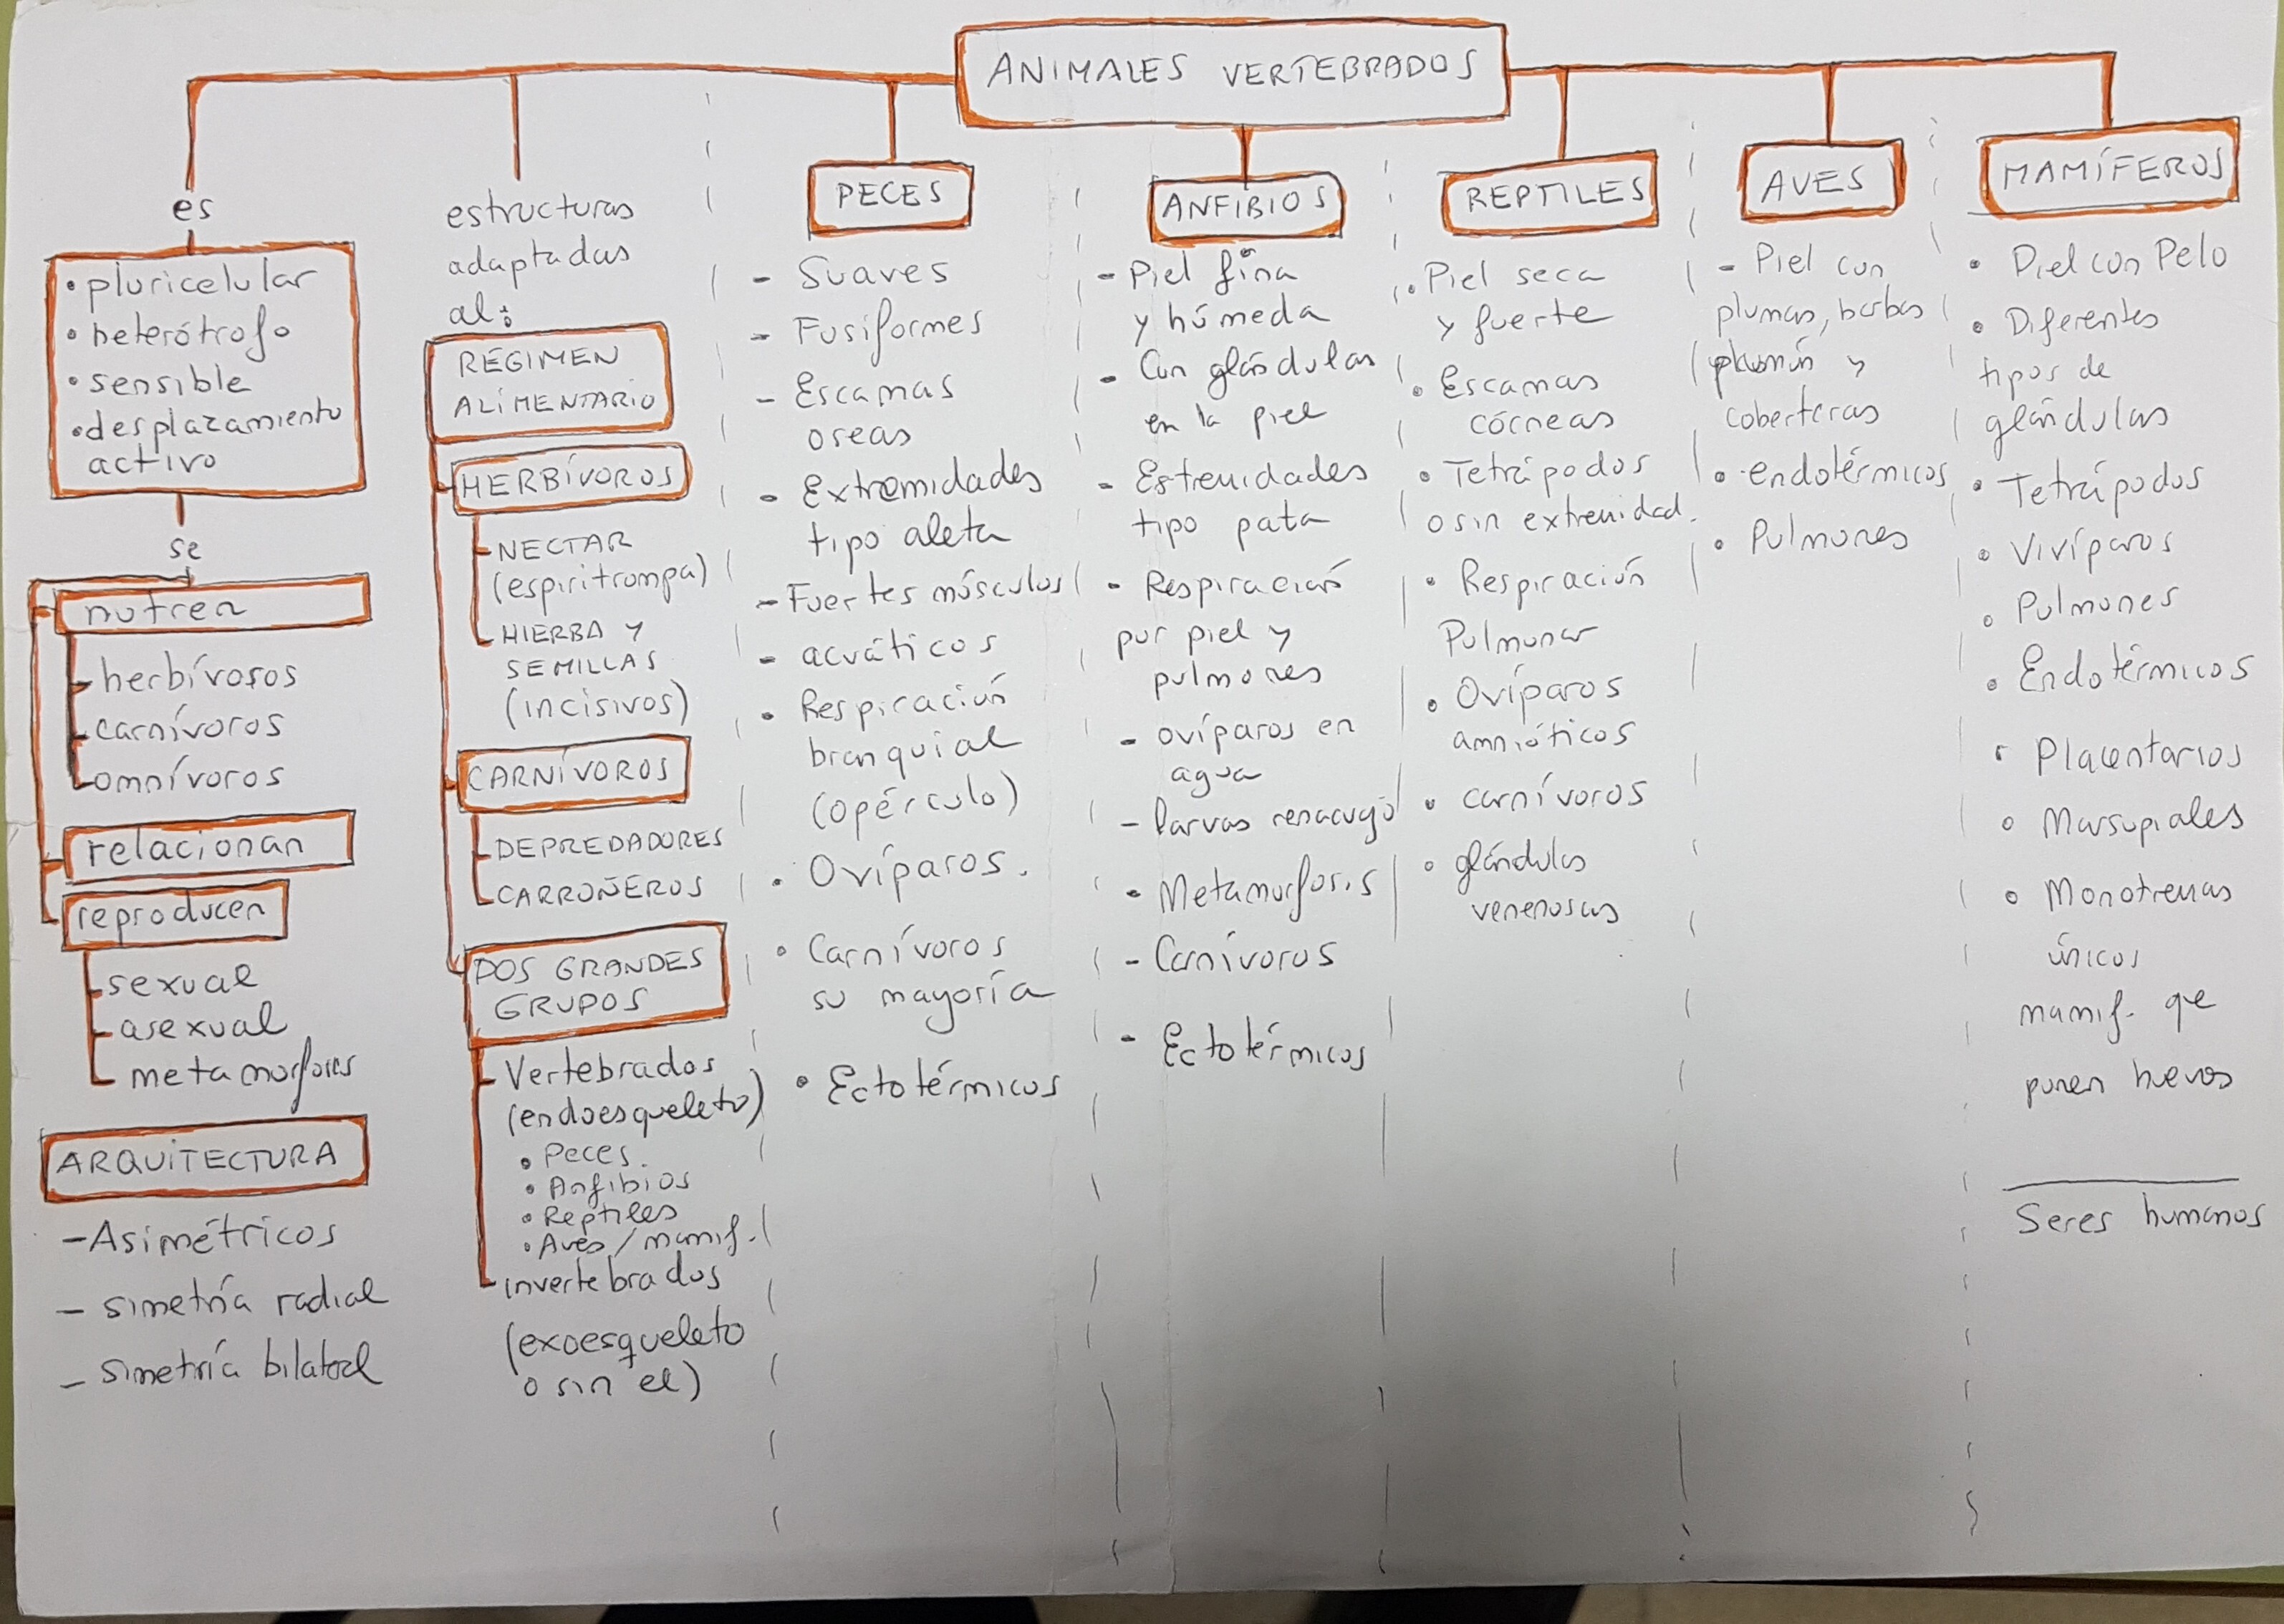 ANIMALES VERTEBRADOS
es
• pluricelular
• heterótrofo
• sensible
• desplazamiento
activo
se
nutren
herbívoros
carnívoros
omnívoros
relacionan
reproducen
sexual
asexual
metamorfosis
ARQUITECTURA
- Asimétricos
- simetría radial
- simetría bilateral
estructuras
adaptadas
al:
RÉGIMEN
ALIMENTARIO
HERBÍVOROS
NECTAR
(espiritrompa)
HIERBA Y
SEMILLAS
(incisivos)
CARNÍVOROS
DEPREDADORES
CARROÑEROS
DOS GRANDES
GRUPOS
Vertebrados
(endoesqueleto)
• Peces.
• Anfibios
• Reptiles
• Aves/mamif.
invertebrados
(exoesqueleto
o sin el)
PECES
- Suaves
- Fusiformes
- Escamas
oseas
- Extremidades
tipo aleta
- Fuertes músculos
- acuáticos
• Respiración
branquial
(opérculo)
• Ovíparos.
• Carnívoros
su mayoría
• Ectotérmicos
ANFIBIOS
- Piel fina
y húmeda
- Con glándulas
en la piel
- Estremidades
tipo pata
- Respiración
por piel y
pulmones
- ovíparos en
agua
- larvas renacuajo
• Metamorfosis
- Carnívoros
- Ectotérmicos
REPTILES
• Piel seca
y fuerte
• Escamas
córneas
• Tetrápodos
o sin extremidad.
• Respiración
Pulmonar
• Ovíparos
amnióticos
• carnívoros
• glándulas
venenosas
AVES
- Piel con
plumas, barbas
plumón y
coberteras
• endotérmicos
• Pulmones
MAMÍFEROS
• Piel con Pelo
• Diferentes
tipos de
glándulas
• Tetrápodos
• Vivíparos
• Pulmones
• Endotérmicos
• Placentarios
• Marsupiales
• Monotremas
únicos
mamif. que
ponen huevos
Seres humanos